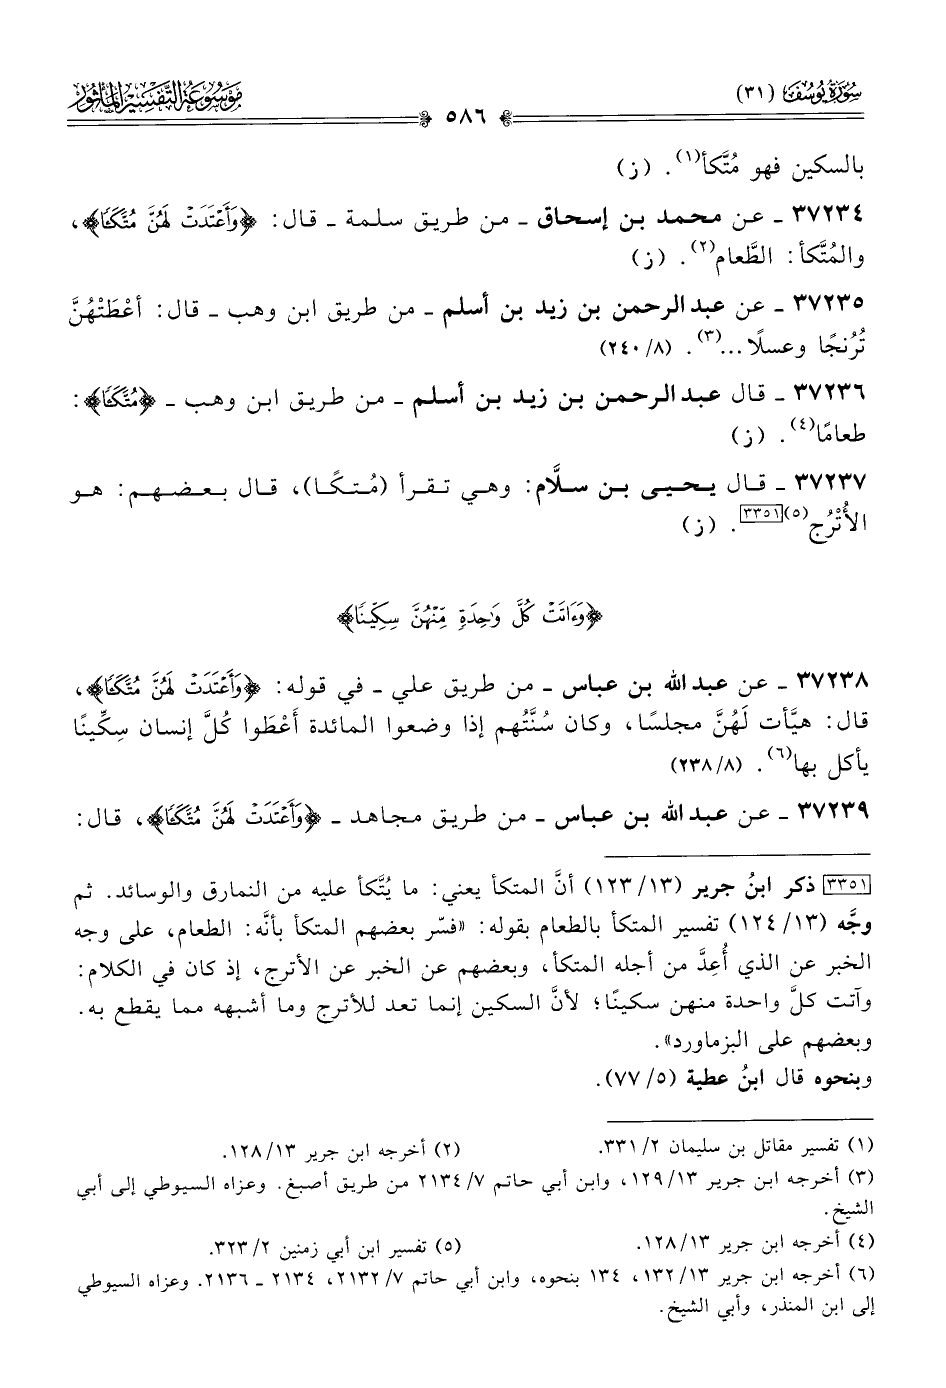 سُورَةُ يُوسُفَ (٣١)
موسوعة التفسير المأثور
٥٨٦
بالسكين فهو مُتَّكأ(١). (ز)
٣٧٢٣٤ ـ عن محمد بن إسحاق ـ من طريق سلمة ـ قال: ﴿وَأَعْتَدَتْ لَهُنَّ مُتَّكَـًٔا﴾،
والمُتَّكأ: الطَّعام(٢). (ز)
٣٧٢٣٥ ـ عن عبد الرحمن بن زيد بن أسلم ـ من طريق ابن وهب ـ قال: أعْطَتْهُنَّ
تُرُنجًا وعسلًا...(٣). (٨/ ٢٤٠)
٣٧٢٣٦ ـ قال عبد الرحمن بن زيد بن أسلم ـ من طريق ابن وهب ـ ﴿مُتَّكَـًٔا﴾:
طعامًا(٤). (ز)
٣٧٢٣٧ ـ قال يحيى بن سلَّام: وهي تقرأ (مُتكًا)، قال بعضهم: هو
الأُتْرُج(٥)[٣٣٥١]. (ز)
﴿وَءَاتَتْ كُلَّ وَٰحِدَةٍ مِّنْهُنَّ سِكِّينًا﴾
٣٧٢٣٨ ـ عن عبد الله بن عباس ـ من طريق علي ـ في قوله: ﴿وَأَعْتَدَتْ لَهُنَّ مُتَّكَـًٔا﴾،
قال: هيَّأت لَهُنَّ مجلسًا، وكان سُنَّتُهم إذا وضعوا المائدة أَعْطَوا كُلَّ إنسان سِكِّينًا
يأكل بها(٦). (٨/ ٢٣٨)
٣٧٢٣٩ ـ عن عبد الله بن عباس ـ من طريق مجاهد ـ ﴿وَأَعْتَدَتْ لَهُنَّ مُتَّكَـًٔا﴾، قال:
[٣٣٥١] ذكر ابنُ جرير (١٣/ ١٢٣) أنَّ المتكأ يعني: ما يُتَّكأ عليه من النمارق والوسائد. ثم
وجَّه (١٣/ ١٢٤) تفسير المتكأ بالطعام بقوله: «فسّر بعضهم المتكأ بأنَّه: الطعام، على وجه
الخبر عن الذي أُعِدَّ من أجله المتكأ، وبعضهم عن الخبر عن الأترج، إذ كان في الكلام:
وآتت كلَّ واحدة منهن سكينًا؛ لأنَّ السكين إنما تعد للأترج وما أشبهه مما يقطع به.
وبعضهم على البزماورد».
وبنحوه قال ابنُ عطية (٥/ ٧٧).
(١) تفسير مقاتل بن سليمان ٢/ ٣٣١.
(٢) أخرجه ابن جرير ١٣/ ١٢٨.
(٣) أخرجه ابن جرير ١٣/ ١٢٩، وابن أبي حاتم ٧/ ٢١٣٤ من طريق أصبغ. وعزاه السيوطي إلى أبي
الشيخ.
(٤) أخرجه ابن جرير ١٣/ ١٢٨.
(٥) تفسير ابن أبي زمنين ٢/ ٣٢٣.
(٦) أخرجه ابن جرير ١٣/ ١٣٢، ١٣٤ بنحوه، وابن أبي حاتم ٧/ ٢١٣٢، ٢١٣٤ ـ ٢١٣٦. وعزاه السيوطي
إلى ابن المنذر، وأبي الشيخ.